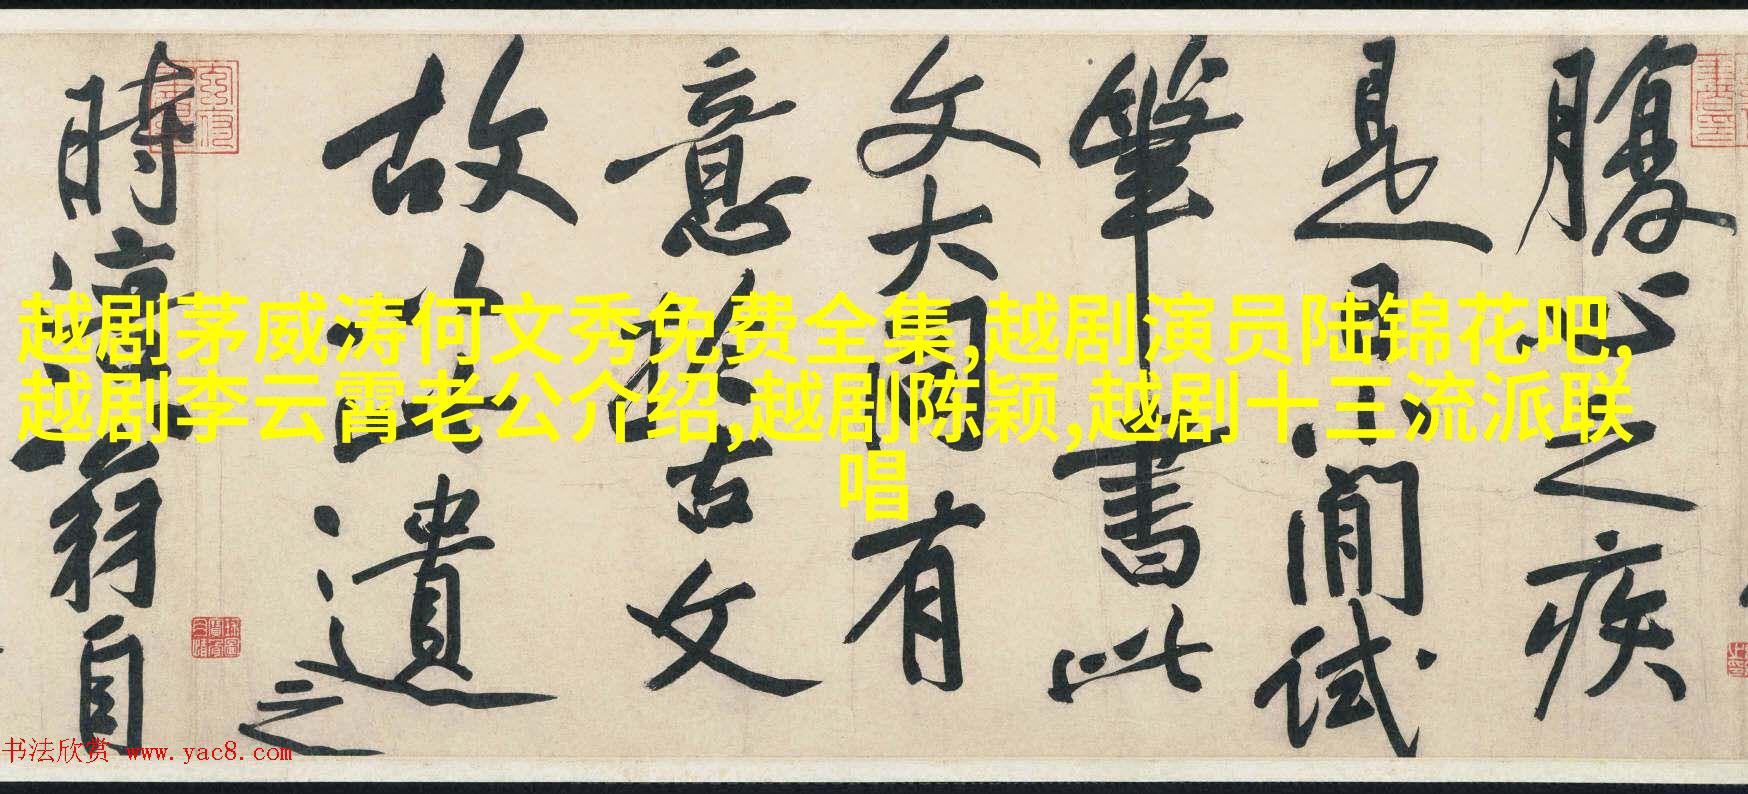 越剧茅威涛何文秀免费全集,越剧演员陆锦花吧,
越剧李云霄老公介绍,越剧陈颖,越剧十三流派联
唱
腹心之疾
是日小閒試
筆書此
文大同有
意於古文
故以遺之
時涪翁自
书法欣赏 www.yac8.com